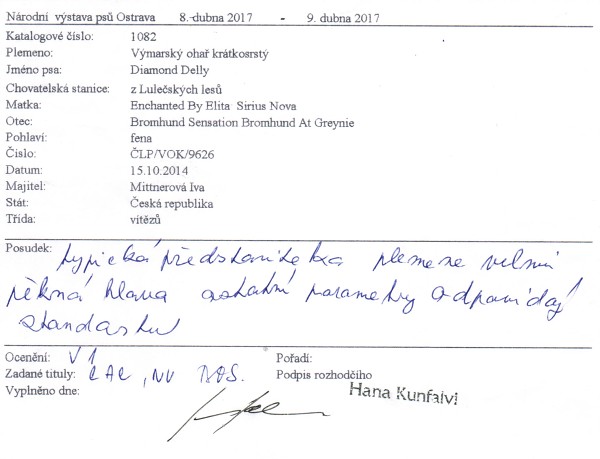 Národní výstava psů Ostrava 8.-dubna 2017 - 9. dubna 2017
Katalogové číslo: 1082
Plemeno: Výmarský ohař krátkosrstý
Jméno psa: Diamond Delly
Chovatelská stanice: z Lulečských lesů
Matka: Enchanted By Elita Sirius Nova
Otec: Bromhund Sensation Bromhund At Greynie
Pohlaví: fena
Číslo: ČLP/VOK/9626
Datum: 15.10.2014
Majitel: Mittnerová Iva
Stát: Česká republika
Třída: vítězů
Posudek: typická představitelka plemene velmi
pěkná hlava ostatní parametry odpovídají
standartu
Ocenění: V1 Pořadí:
Zadané tituly: CAC, NV BOS. Podpis rozhodčího
Vyplněno dne: Hana Kunfalvi